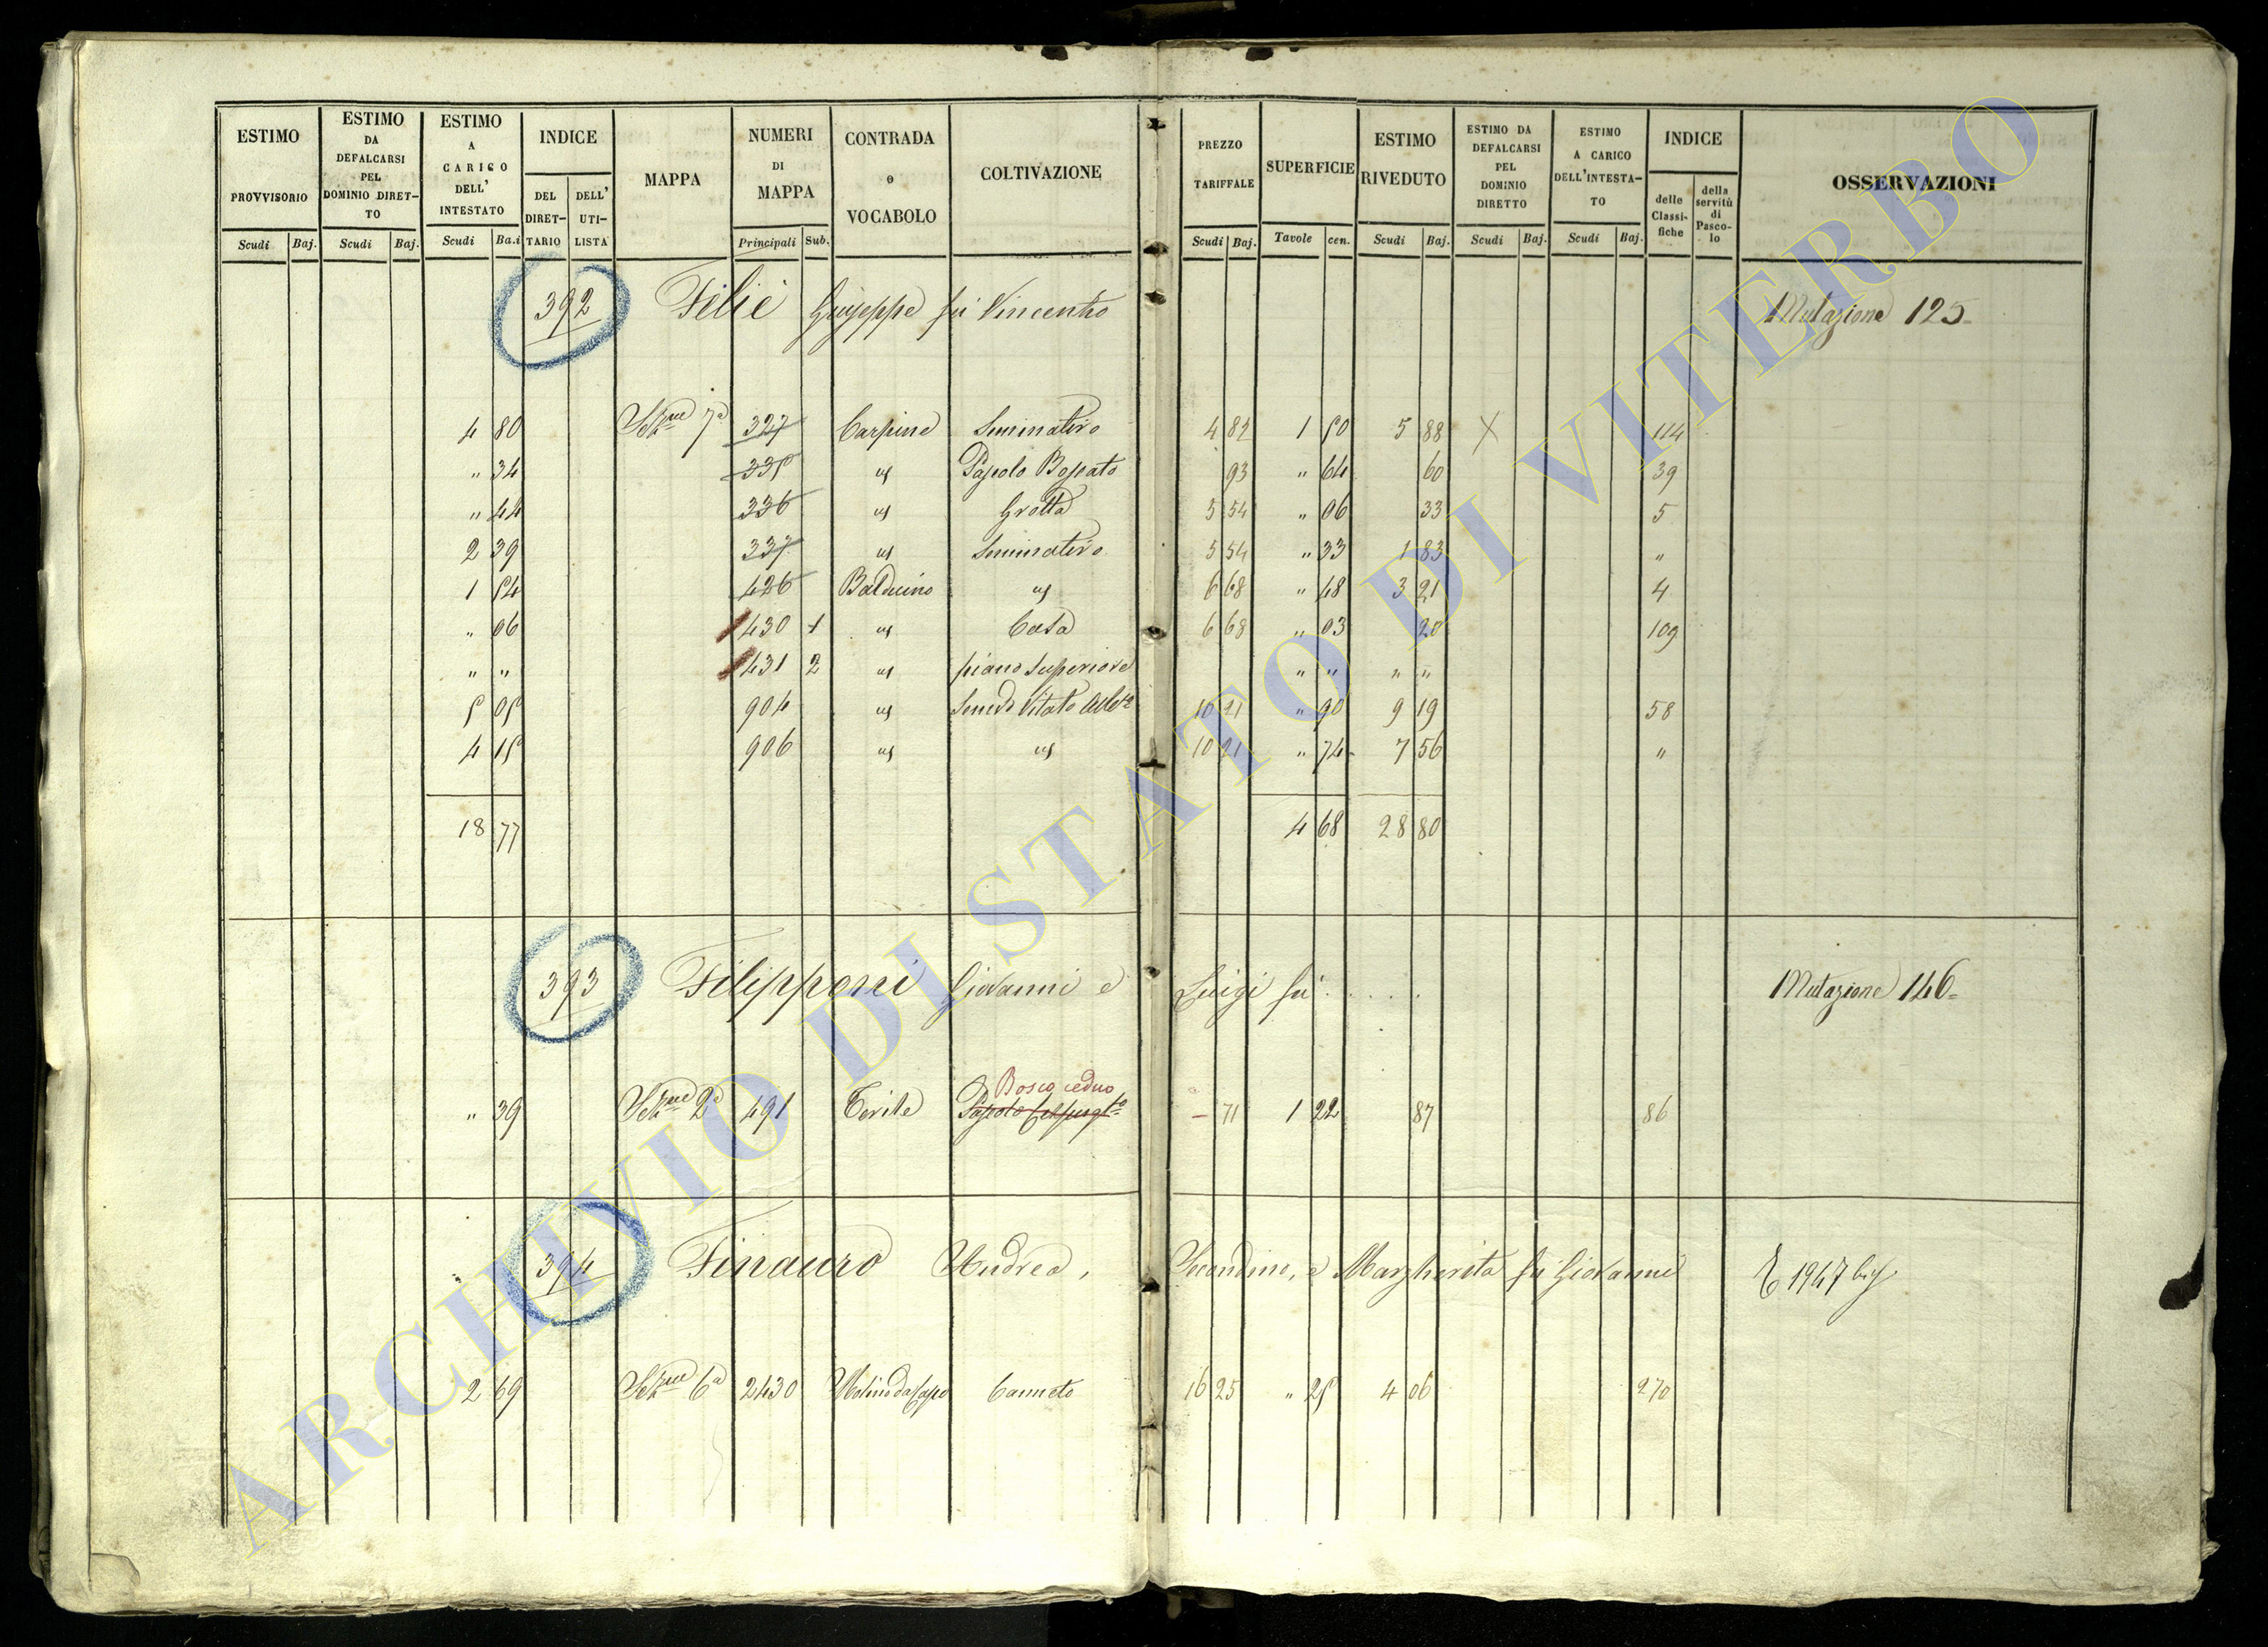 ESTIMO PROVVISORIO Scudi Baj.
ESTIMO DA DEFALCARSI PEL DOMINIO DIRET-TO Scudi Baj.
ESTIMO A CARICO DELL' INTESTATO Scudi Ba.i
INDICE DEL DIRET-TARIO DELL' UTI-LISTA
MAPPA
NUMERI DI MAPPA Principali Sub.
CONTRADA O VOCABOLO
COLTIVAZIONE
PREZZO TARIFFALE Scudi Baj.
SUPERFICIE Tavole cen.
ESTIMO RIVEDUTO Scudi Baj.
ESTIMO DA DEFALCARSI PEL DOMINIO DIRETTO Scudi Baj.
ESTIMO A CARICO DELL'INTESTA-TO Scudi Baj.
INDICE delle Classi-fiche della servitù di Pasco-lo
OSSERVAZIONI
392 Filiè Giuseppe fu Vincenzo Mutazione 125
4 80 Sez.ne 7a 327 Carpine Seminativo 4 82 1 50 5 88 X 114
" 34 335 us Pascolo Boscato 93 " 64 60 39
" 44 336 us Grotta 5 54 " 06 33 5
2 39 337 us Seminativo 5 54 " 33 1 83 "
1 54 426 Balduino us 6 68 " 48 3 21 4
" 06 430 1 us Casa 6 68 " 03 20 109
" " 431 2 us piano superiore " " " "
5 05 904 us Semvo Vitato 10 21 " 90 9 19 58
4 15 906 us us 10 21 " 74 7 56 "
18 77 4 68 28 80
393 Filipponi Giovanni e Luigi fu ..... Mutazione 146
Bosco ceduo
" 39 Sez.ne 2a 491 Pascolo - 71 1 22 87 86
394 Finauro Andrea, Secondino, e Margherita fu Giovanni 1947 bis
2 69 Sez.ne 6a 2430 Canneto 16 25 " 25 4 06 270
ARCHIVIO DI STATO DI VITERBO